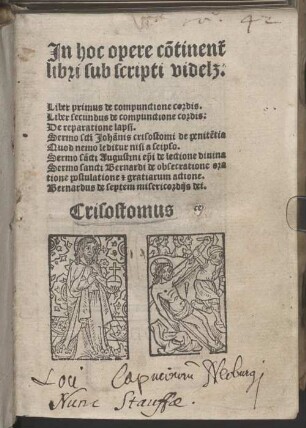 42
In hoc opere cōtinent᷑
libri sub scripti videlꝫ:
Liber primus de compunctione cordis.
Liber secundus de compunctione cordis:
De reparatione lapsi.
Sermo scti Johānis crisostomi de penitētia
Quod nemo leditur nisi a seipso.
Sermo sācti Augustini epi de lectione diuina
Sermo sancti Bernardi de obsecratione ora
tione postulatione ⁊ gratiarum actione.
Bernardus de septem misericordijs dei.
Crisostomus
Loci Capucinorum Neoburgi
Nunc Stauffæ.